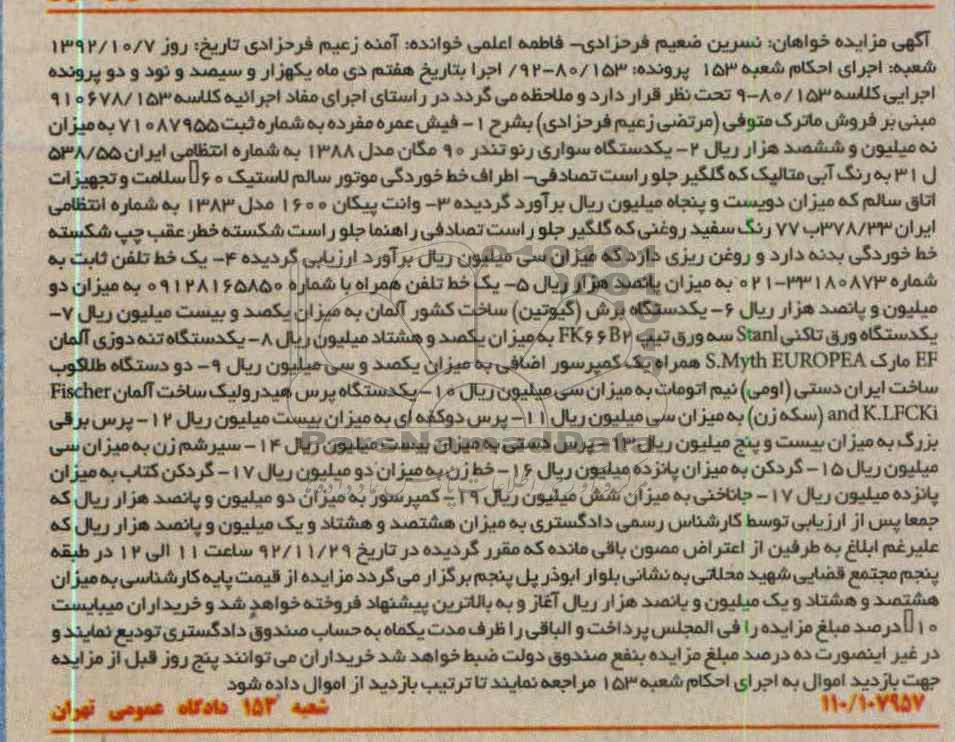 آگهی مزایده خواهان: نسرین ضعیم فرحزادی- فاطمه اعلمی خوانده: آمنه زعیم فرحزادی تاریخ: روز ۱۳۹۲/۱۰/۷
شعبه: اجرای احکام شعبه ۱۵۳ پرونده: ۸۰/۱۵۳-۹۲/ اجرا بتاریخ هفتم دی ماه یکهزار و سیصد و نود و دو پرونده
اجرایی کلاسه ۸۰/۱۵۳-۹ تحت نظر قرار دارد و ملاحظه می گردد در راستای اجرای مفاد اجرائیه کلاسه ۹۱۰۶۷۸/۱۵۳
مبنی بر فروش ماترک متوفی (مرتضی زعیم فرحزادی) بشرح ۱- فیش عمره مفرده به شماره ثبت ۷۱۰۸۷۹۵۵ به میزان
نه میلیون و ششصد هزار ریال ۲- یکدستگاه سواری رنو تندر ۹۰ مگان مدل ۱۳۸۸ به شماره انتظامی ایران ۵۳۸/۵۵
ل ۳۱ به رنگ آبی متالیک که گلگیر جلو راست تصادفی- اطراف خط خوردگی موتور سالم لاستیک ۶۰ سلامت و تجهیزات
اتاق سالم که میزان دویست و پنجاه میلیون ریال برآورد گردیده ۳- وانت پیکان ۱۶۰۰ مدل ۱۳۸۳ به شماره انتظامی
ایران ۳۷۸/۳۳ب ۷۷ رنگ سفید روغنی که گلگیر جلو راست تصادفی راهنما جلو راست شکسته خطر عقب چپ شکسته
خط خوردگی بدنه دارد و روغن ریزی دارد که میزان سی میلیون ریال برآورد ارزیابی گردیده ۴- یک خط تلفن ثابت به
شماره ۳۳۱۸۰۸۷۳-۰۲۱ به میزان پانصد هزار ریال ۵- یک خط تلفن همراه با شماره ۰۹۱۲۸۱۶۵۸۵۰ به میزان دو
میلیون و پانصد هزار ریال ۶- یکدستگاه برش (گیوتین) ساخت کشور آلمان به میزان یکصد و بیست میلیون ریال ۷-
یکدستگاه ورق تاکنی Stanl سه ورق تیپ FK۶۶B۲ به میزان یکصد و هشتاد میلیون ریال ۸- یکدستگاه ته دوزی آلمان
EF مارک S.Myth EUROPEA همراه یک کمپرسور اضافی به میزان یکصد و سی میلیون ریال ۹- دو دستگاه طلاکوب
ساخت ایران دستی (اومی) نیم اتومات به میزان سی میلیون ریال ۱۰- یکدستگاه پرس هیدرولیک ساخت آلمان Fischer
and K.LFCKi (سکه زن) به میزان سی میلیون ریال ۱۱- پرس دوکفه ای به میزان بیست میلیون ریال ۱۲- پرس برقی
بزرگ به میزان بیست و پنج میلیون ریال ۱۳- پرس دستی به میزان بیست میلیون ریال ۱۴- سیرشم زن به میزان سی
میلیون ریال ۱۵- گردکن به میزان پانزده میلیون ریال ۱۶- خط زن به میزان دو میلیون ریال ۱۷- گردکن کتاب به میزان
پانزده میلیون ریال ۱۷- جاناخنی به میزان شش میلیون ریال ۱۹- کمپرسور به میزان دو میلیون و پانصد هزار ریال که
جمعا پس از ارزیابی توسط کارشناس رسمی دادگستری به میزان هشتصد و هشتاد و یک میلیون و پانصد هزار ریال که
علیرغم ابلاغ به طرفین از اعتراض مصون باقی مانده که مقرر گردیده در تاریخ ۹۲/۱۱/۲۹ ساعت ۱۱ الی ۱۲ در طبقه
پنجم مجتمع قضایی شهید محلاتی به نشانی بلوار ابوذر پل پنجم برگزار می گردد مزایده از قیمت پایه کارشناسی به میزان
هشتصد و هشتاد و یک میلیون و پانصد هزار ریال آغاز و به بالاترین پیشنهاد فروخته خواهد شد و خریداران میبایست
۱۰ درصد مبلغ مزایده را فی المجلس پرداخت و الباقی را ظرف مدت یکماه به حساب صندوق دادگستری تودیع نمایند و
در غیر اینصورت ده درصد مبلغ مزایده بنفع صندوق دولت ضبط خواهد شد خریداران می توانند پنج روز قبل از مزایده
جهت بازدید اموال به اجرای احکام شعبه ۱۵۳ مراجعه نمایند تا ترتیب بازدید از اموال داده شود
۱۱۰/۱۰۷۹۵۷ شعبه ۱۵۳ دادگاه عمومی تهران